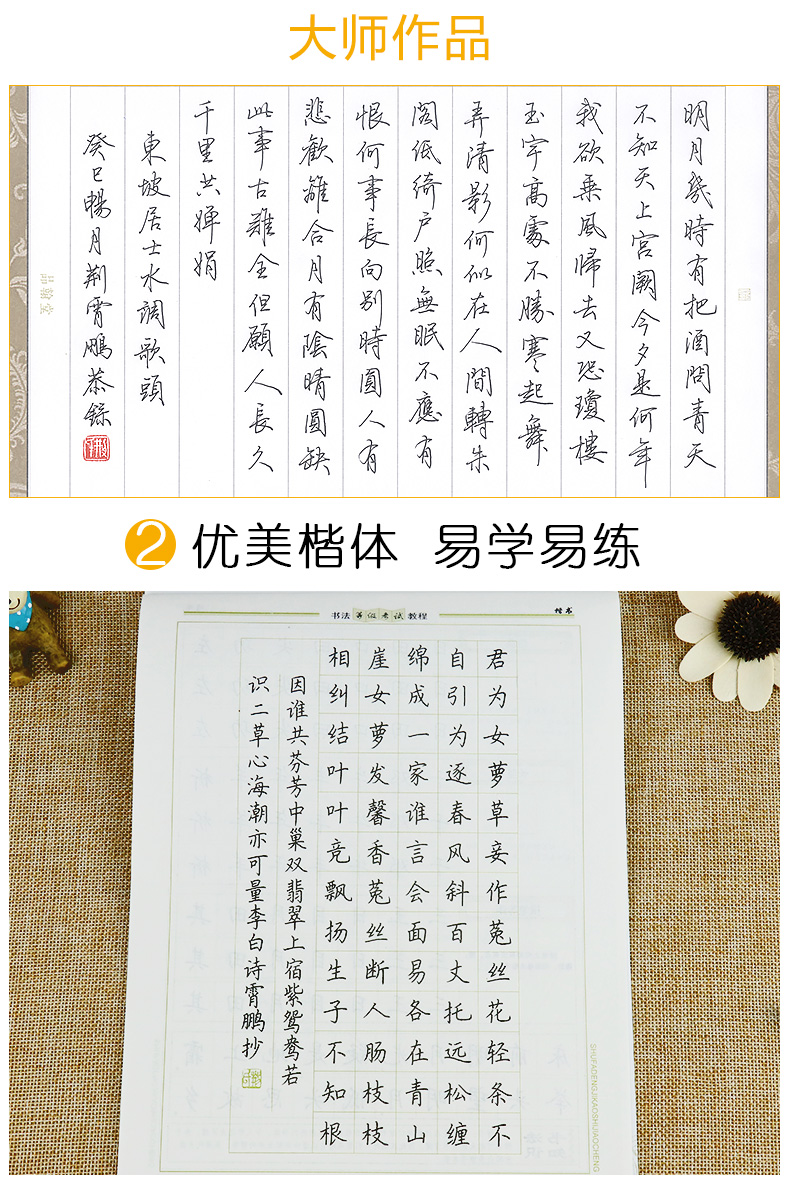 大师作品
明月幾時有把酒問青天
不知天上宮闕今夕是何年
我欲乘風歸去又恐瓊樓
玉宇高處不勝寒起舞
弄清影何似在人間轉朱
閣低綺户照無眠不應有
恨何事長向别時圓人有
悲歡離合月有陰晴圓缺
此事古難全但願人長久
千里共嬋娟
東坡居士水調歌頭
癸巳暢月荆霄鵬恭錄
品翰堂
2 优美楷体 易学易练
书法等级考试教程
楷书
君为女萝草妾作菟丝花轻条不
自引为逐春风斜百丈托远松缠
绵成一家谁言会面易各在青山
崖女萝发馨香菟丝断人肠枝枝
相纠结叶叶竞飘扬生子不知根
因谁共芬芳中巢双翡翠上宿紫鸳鸯若
识二草心海潮亦可量李白诗霄鹏抄
SHUFADENGJIKAOSHIJIAOCHENG